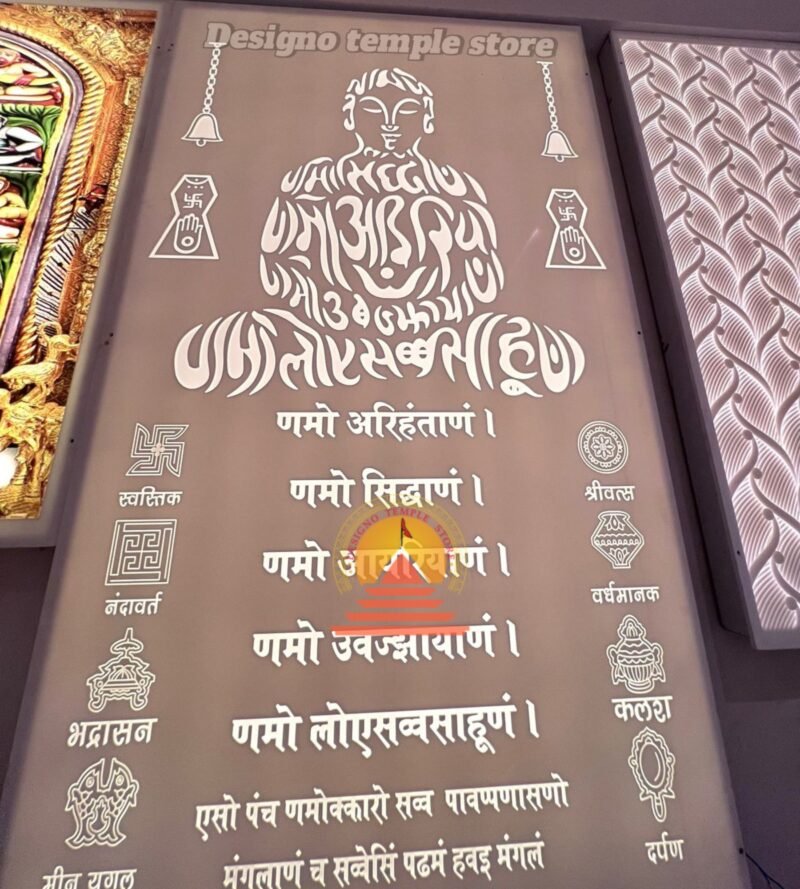 Designo temple store
णमो सिद्धाणं
णमो आइरियाणं
णमो उवज्झायाणं
णमो लोएसव्वसाहूणं
णमो अरिहंताणं ।
स्वस्तिक
णमो सिद्धाणं ।
श्रीवत्स
DESIGNO TEMPLE STORE
णमो आयरियाणं ।
नंदावर्त
वर्धमानक
णमो उवज्झायाणं ।
भद्रासन
णमो लोएसव्वसाहूणं ।
कलश
एसो पंच णमोक्कारो सव्व पावप्पणासणो
मंगलाणं च सव्वेसिं पढमं हवइ मंगलं
दर्पण
मीन युगल